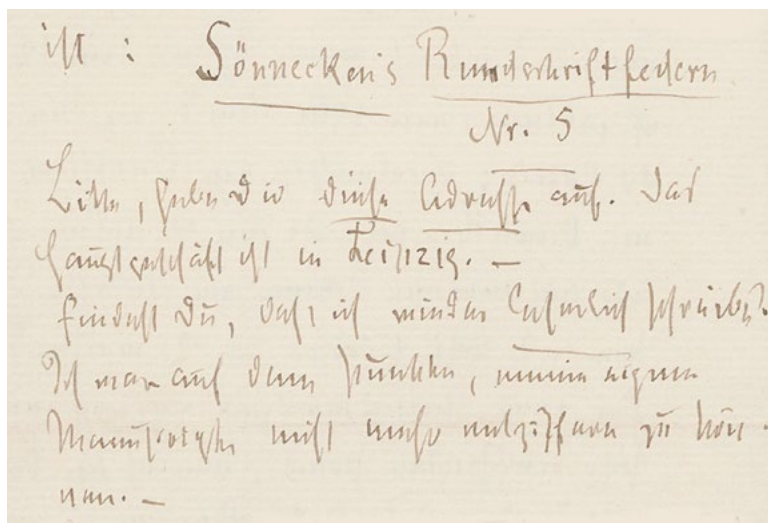 ist : Sönnecken's Rundschriftfedern
Nr. 5
Bitte, hebe Dir diese Adresse auf. Das
Hauptgeschäft ist in Leipzig. —
Findest Du, daß ich wieder leserlich schreibe?
Ich war auf dem Punkte, meine eignen
Manuscripte nicht mehr entziffern zu kön-
nen. —